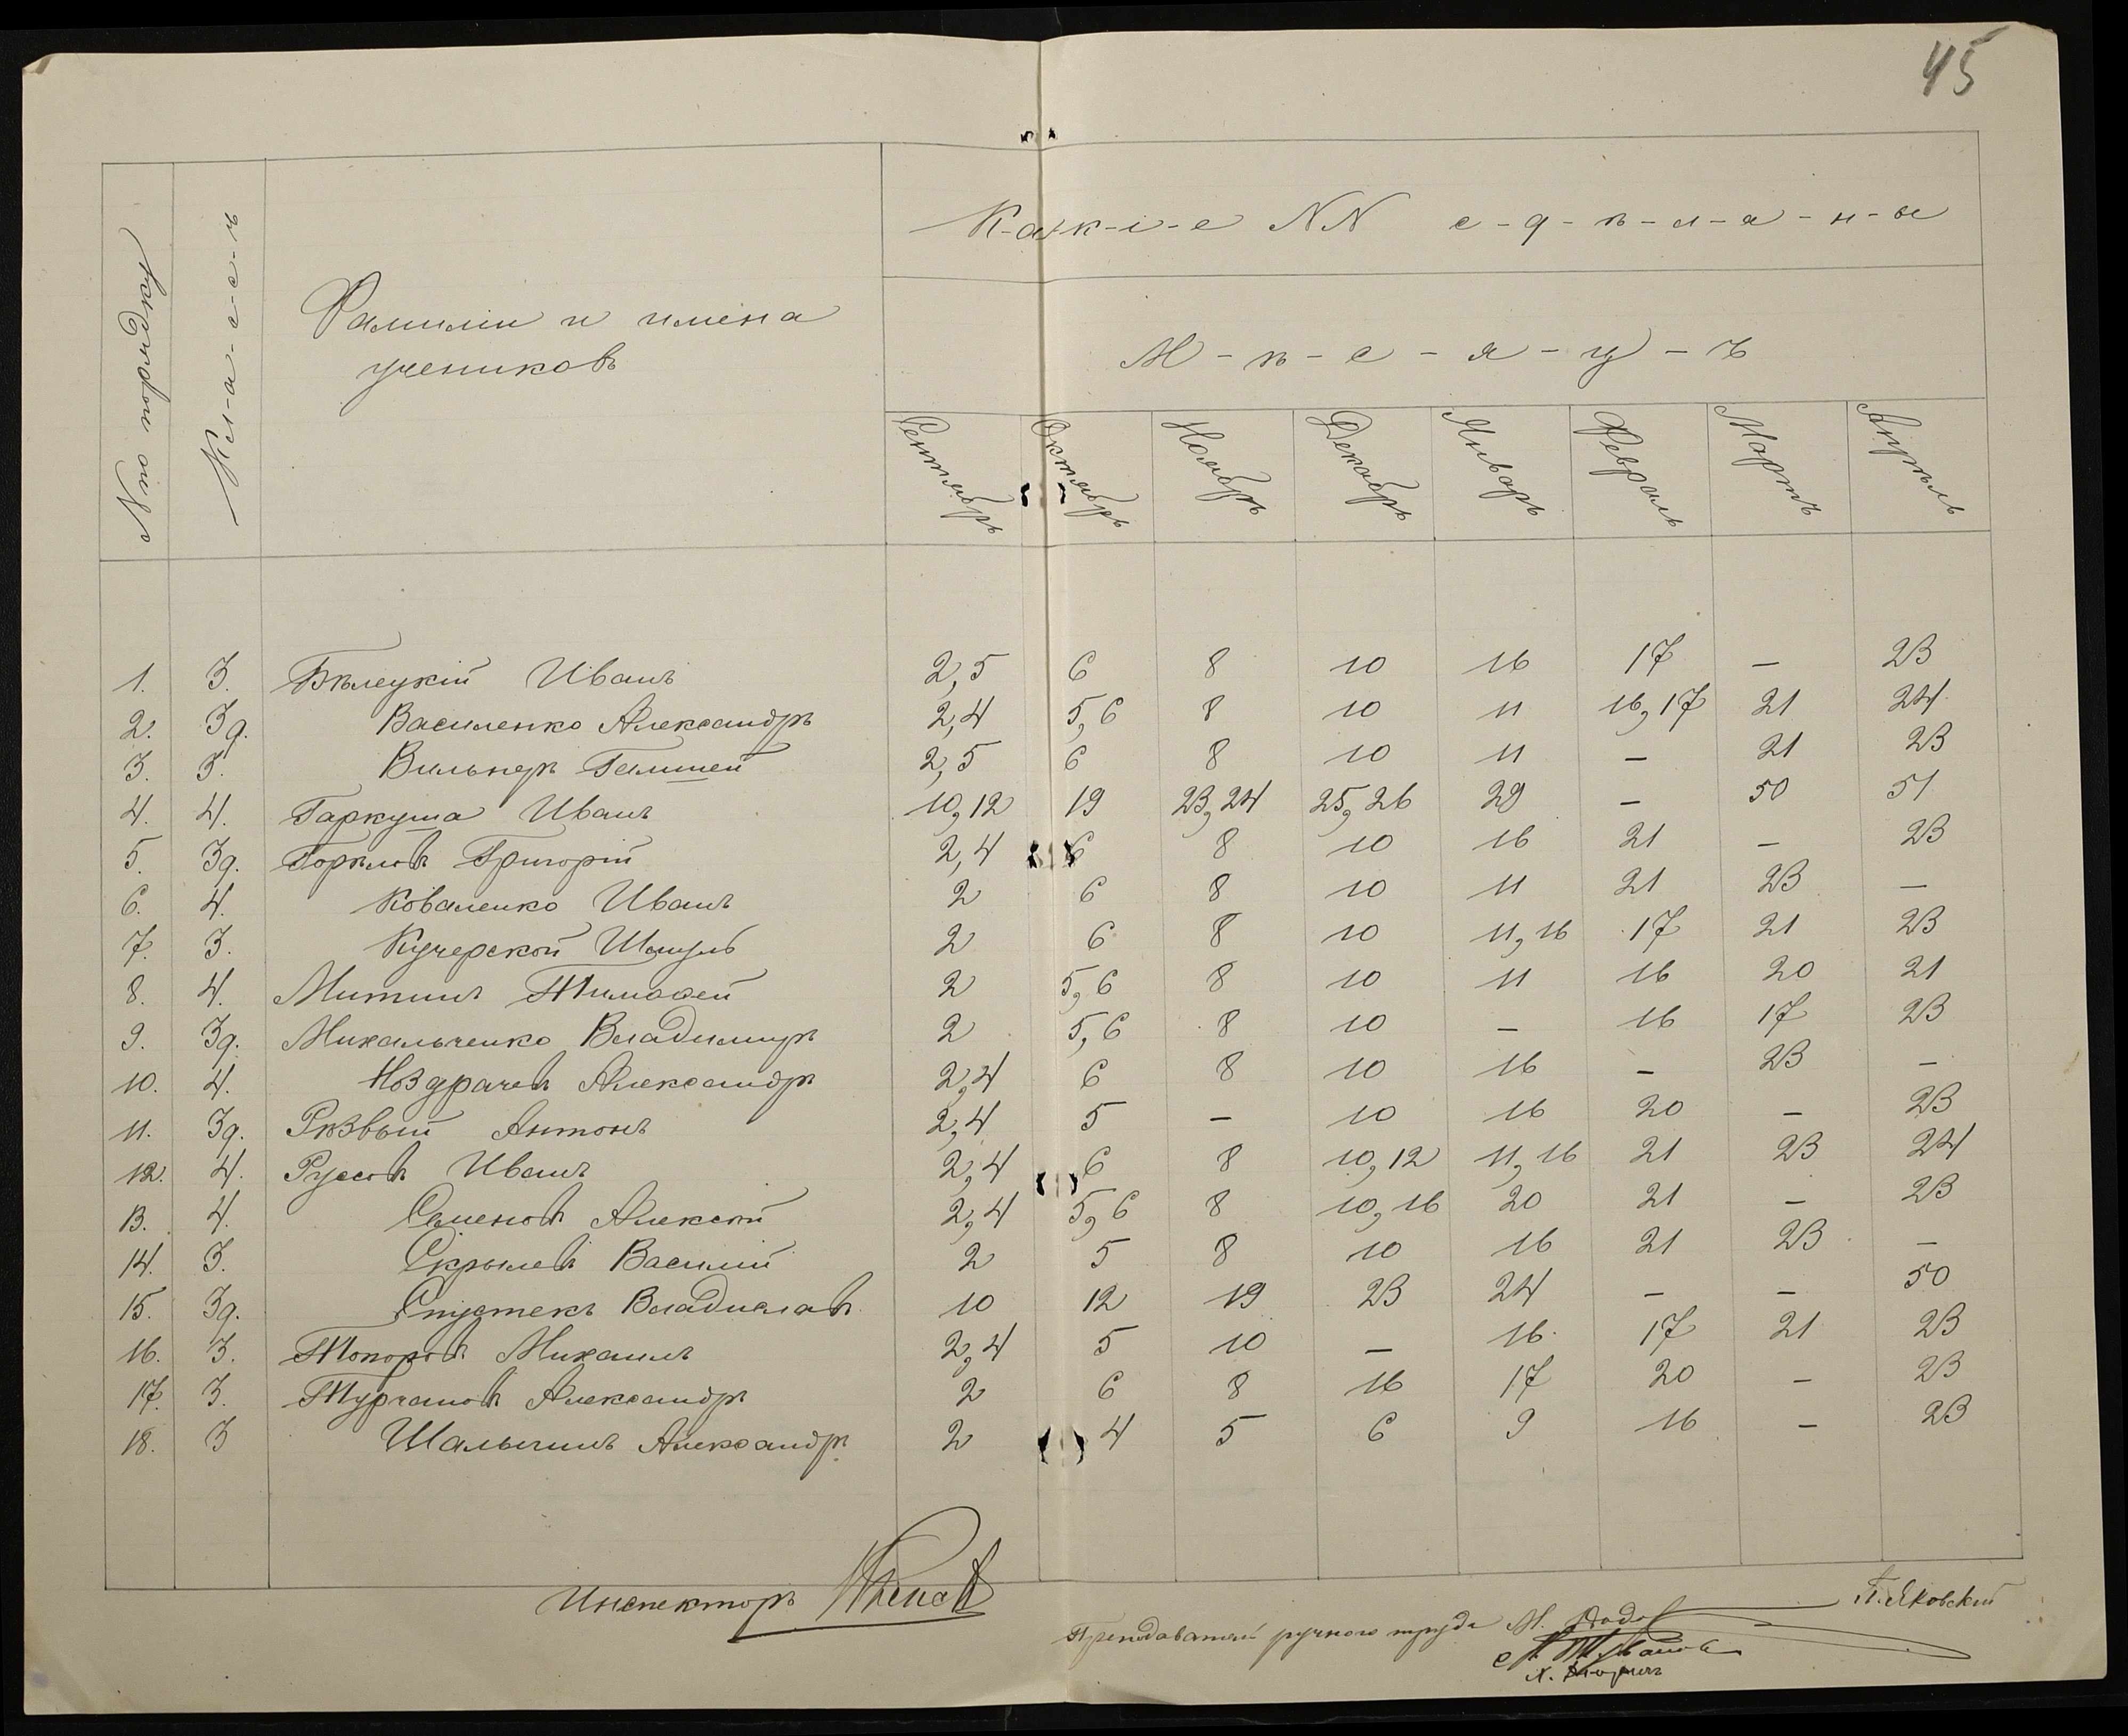 45
№ по порядку
К-л-а-с-с-ъ
Фамиліи и имена
учениковъ
К-а-к-і-е NN с-д-ѣ-л-а-н-ы
М-ѣ-с-я-ц-ъ
Сентябрь Октябрь Ноябрь Декабрь Январь Февраль Мартъ Апрѣль
1. 3. Бѣлецкій Иванъ 2,5 6 8 10 16 17 — 23
2. 3д. Василенко Александръ 2,4 5,6 8 10 11 16,17 21 24
3. 3. Вильнеръ 2,5 6 8 10 11 — 21 23
4. 4. Гаркуша Иванъ 10,12 19 23,24 25,26 29 — 50 51
5. 3д. Горѣловъ Григорій 2,4 6 8 10 16 21 — 23
6. 4. Коваленко Иванъ 2 6 8 10 11 21 23 —
7. 3. Кучерской Шмуль 2 6 8 10 11,16 17 21 23
8. 4. Митинъ Тимоѳей 2 5,6 8 10 11 16 20 21
9. 3д. Михальченко Владимиръ 2 5,6 8 10 — 16 17 23
10. 4. Ноздрачевъ Александръ 2,4 6 8 10 16 — 23 —
11. 3д. Рѣзвый Антонъ 2,4 5 — 10 16 20 — 23
12. 4. Руссовъ Иванъ 2,4 6 8 10,12 11,16 21 23 24
13. 4. Семеновъ Алексѣй 2,4 5,6 8 10,16 20 21 — 23
14. 3. Скрылевъ Василій 2 5 8 10 16 21 23 —
15. 3д. Спустекъ Владиславъ 10 12 19 23 24 — — 50
16. 3. Топоровъ Михаилъ 2,4 5 10 — 16 17 21 23
17. 3. Турчановъ Александръ 2 6 8 16 17 20 — 23
18. 3 Шалыгинъ Александръ 2 4 5 6 9 16 — 23
Инспекторъ
Преподаватели ручного труда М. П. Яковскій